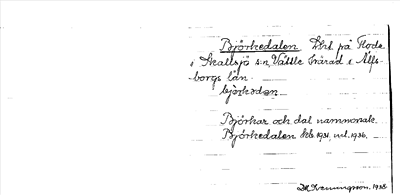 Björkedalen Lht på Floda
i Skallsjö s:n, Vättle härad i Älfs-
borgs län.
björkedan
Björkar och dal nammorsak.
Björkedalen hts 1931, utl. 1936.
1938